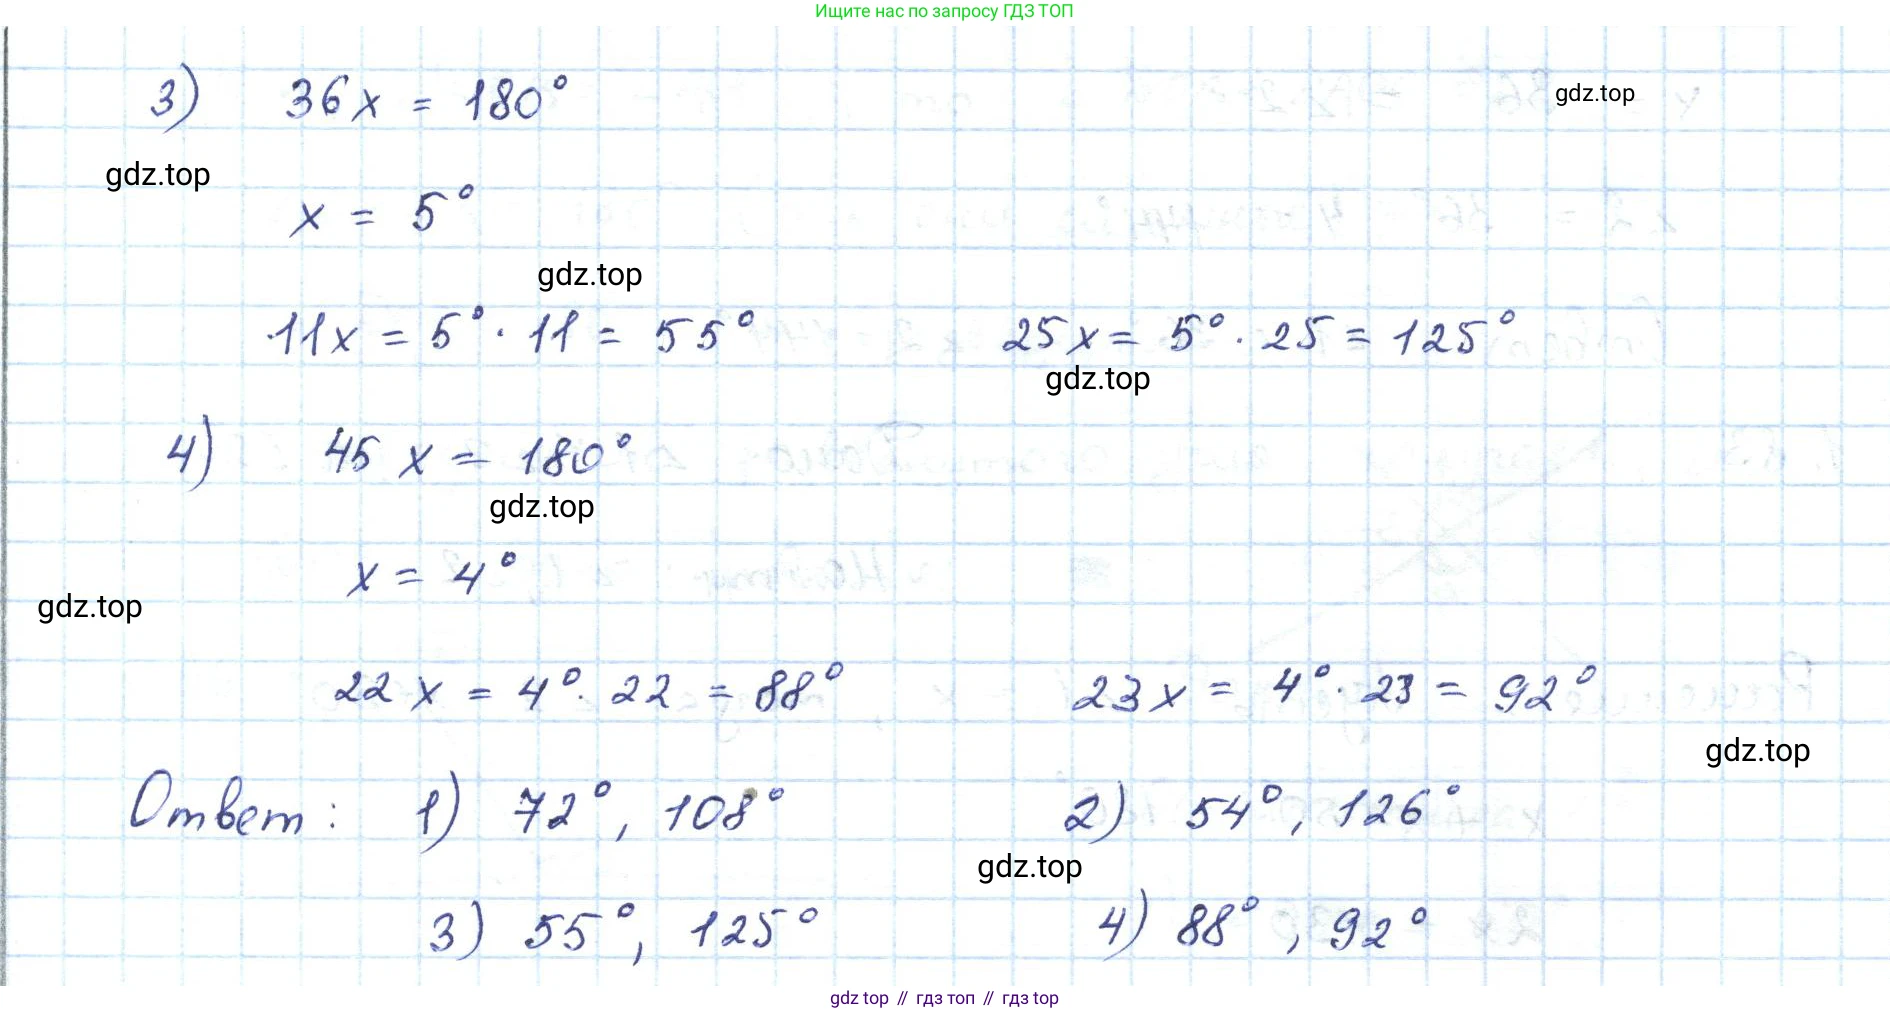 Ищите нас по запросу ГДЗ ТОП
3) 36x = 180°
gdz.top
gdz.top
x = 5°
gdz.top
11x = 5° · 11 = 55° 25x = 5° · 25 = 125°
gdz.top
4) 45x = 180°
gdz.top
x = 4°
gdz.top
22x = 4° · 22 = 88° 23x = 4° · 23 = 92°
gdz.top
Ответ: 1) 72°, 108° 2) 54°, 126°
gdz.top
3) 55°, 125° 4) 88°, 92°
gdz top // гдз топ // гдз top